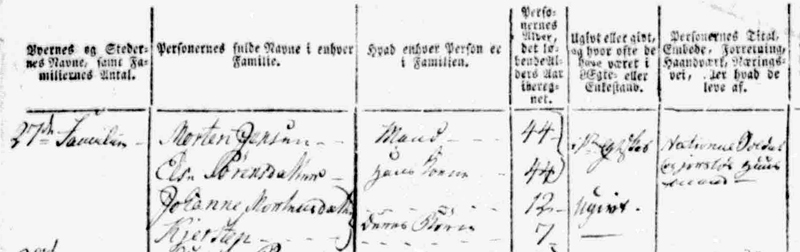 Byernes og Steder-
nes Navne, samt Fa-
miliernes Antal.
Personernes fulde Navne i enhver
Familie.
Hvad enhver Person er
i Familien.
Perso-
nernes
Alder,
det lø-
bende Al-
ders Aar
iberegn-
net.
Ugivt eller givt,
og hvor ofte de
have været i
Ægte- eller
Enkestand.
Personernes Titel,
Embede, Forretning,
Haandværk, Nærings-
vei, eller hvad de
leve af.
27de Familie Morten Jensen Mand 44 National Soldat
Else Sørensdatter Hans Kone 44
Johanne Mortensdatter 12 Ugivt
Kjersten deres Børn 7